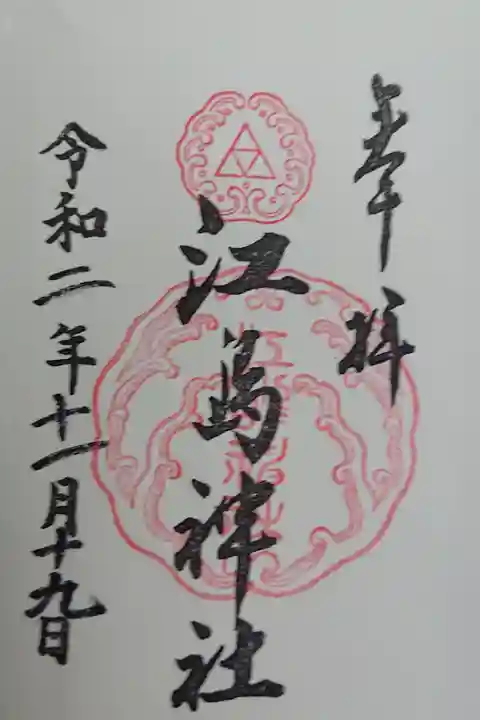 奉拝
江島神社
令和二年十一月十九日